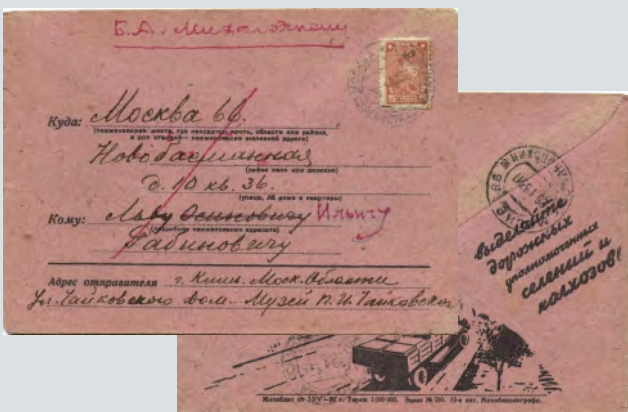 Б.А.
Куда: Москва 66.
(наименование места, где находится почта, области или района,
а для станций — наименование железной дороги)
Новобасманная
(район, село или деревня)
д. 10 кв. 36.
(улица, № дома и квартиры)
Кому: Льву Осиповичу Ильичу
Рабиновичу
Адрес отправителя г. Клин, Моск. Области
Ул. Чайковского дом. Музей П. И. Чайковского
выделяйте
дорожных
уполномоченных
селений и
колхозов!
Тираж 1 000 000. Заказ № 150.